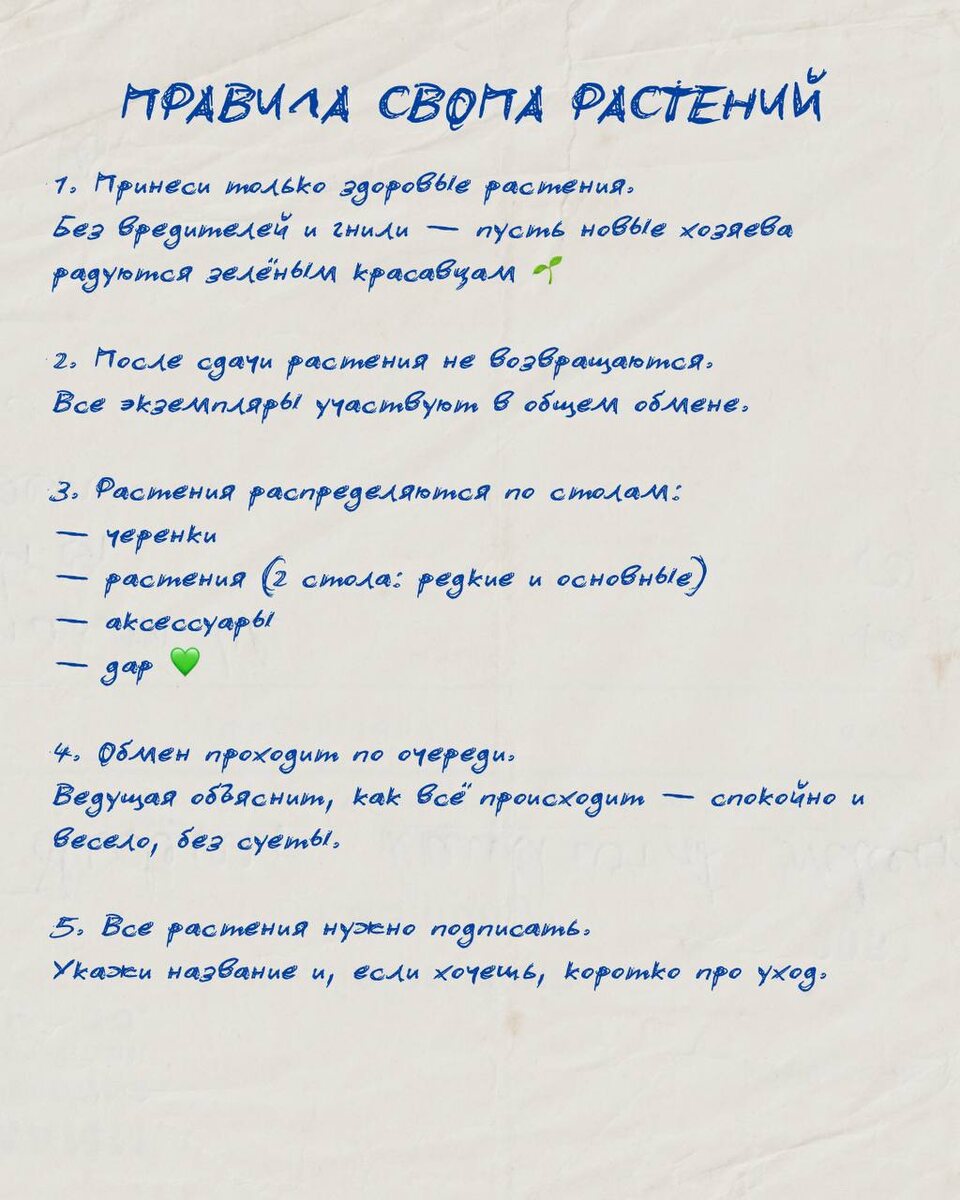 ПРАВИЛА СВОПА РАСТЕНИЙ
1. Принеси только здоровые растения.
Без вредителей и гнили — пусть новые хозяева
радуются зелёным красавцам 🌱
2. После сдачи растения не возвращаются.
Все экземпляры участвуют в общем обмене.
3. Растения распределяются по столам:
— черенки
— растения (2 стола: редкие и основные)
— аксессуары
— дар 💚
4. Обмен проходит по очереди.
Ведущая объяснит, как всё происходит — спокойно и
весело, без суеты.
5. Все растения нужно подписать.
Укажи название и, если хочешь, коротко про уход.